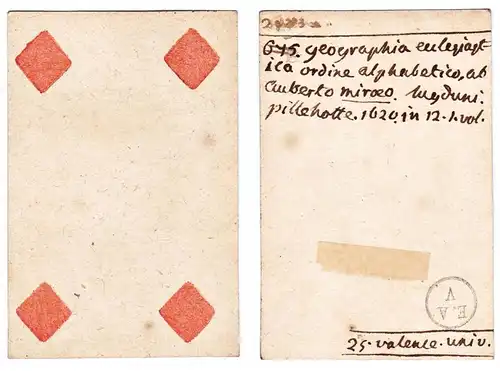 645. geographia eclesiast
ica ordine alphabetico, ab
Auberto miræo. lugduni.
pillehotte. 1620. in 12. 1. vol.
E. A
V
25. valence. univ.